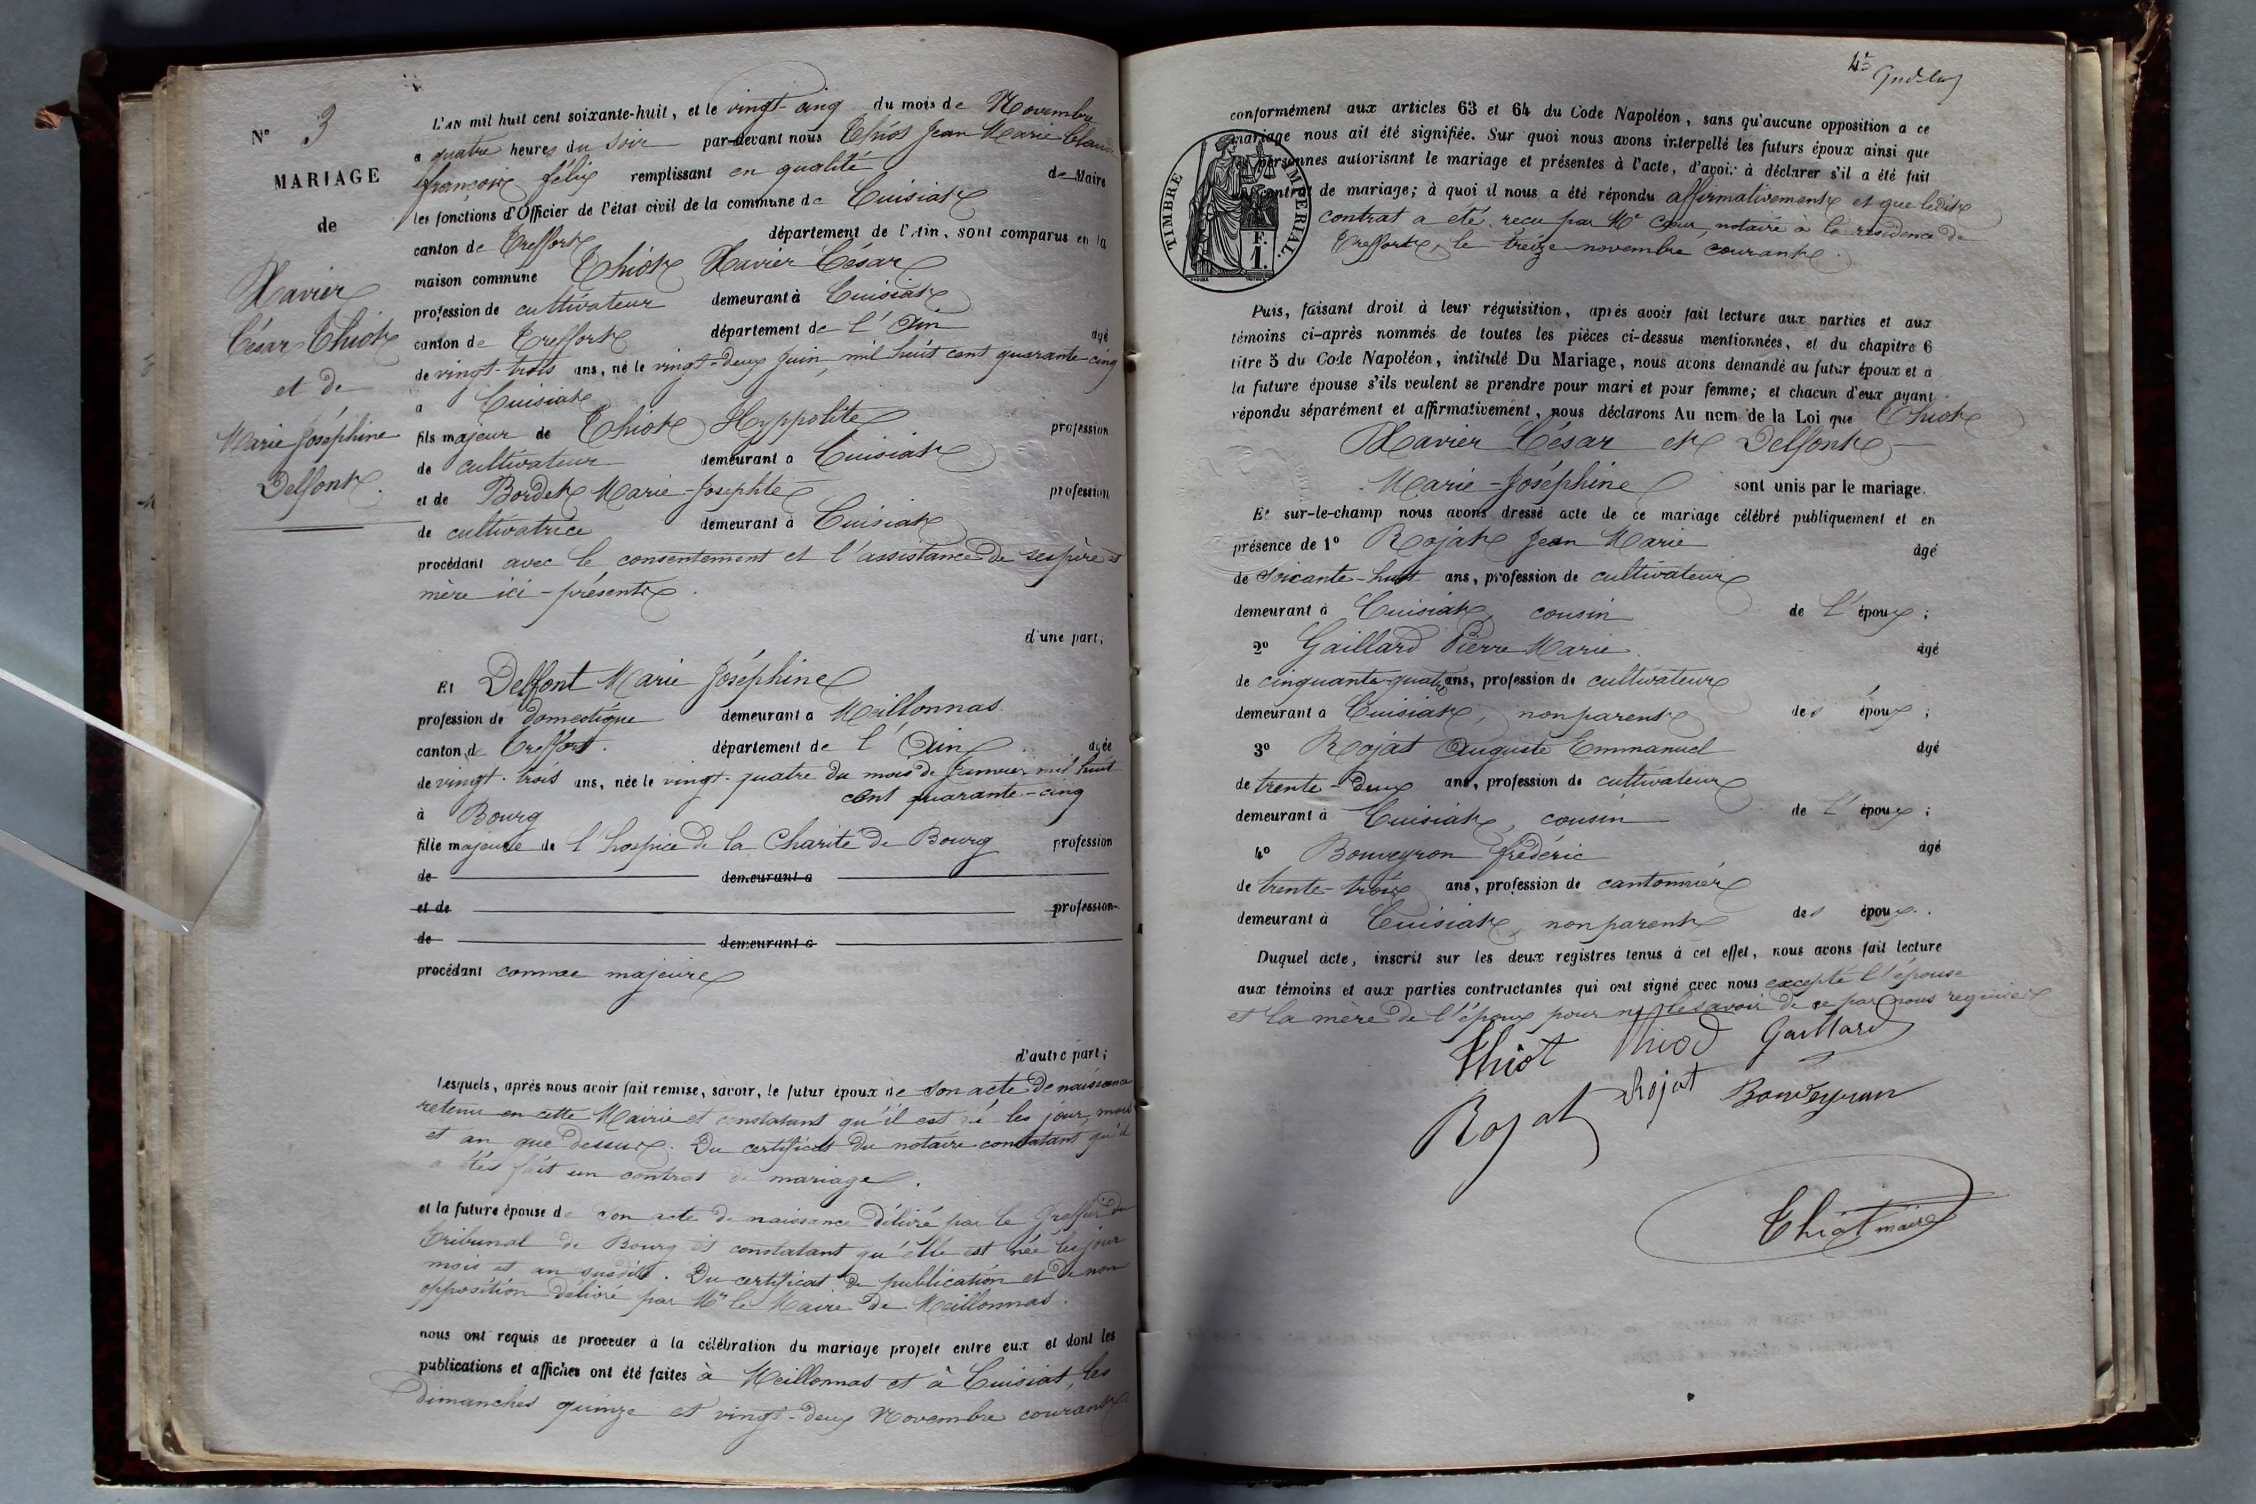 N° 3
MARIAGE
de
Xavier
César Thiot
et de
Marie Joséphine
Delfont.
L'AN mil huit cent soixante-huit, et le vingt-cinq du mois de Novembre
a quatre heures du soir par-devant nous Thiot Jean Marie Claude
françois félix remplissant en qualité de Maire
les fonctions d'Officier de l'état civil de la commune de Cuisiat
canton de Treffort département de l'Ain, sont comparus en la
maison commune Thiot Xavier César
profession de cultivateur demeurant à Cuisiat
canton de Treffort département de l'Ain agé
de vingt-trois ans, né le vingt-deux juin, mil huit cent quarante-cinq
a Cuisiat
fils majeur de Thiot Hyppolite profession
de cultivateur demeurant a Cuisiat
et de Bordet Marie-Josephte profession
de cultivatrice demeurant à Cuisiat
procédant avec le consentement et l'assistance de ses père et
mère ici-présents.
d'une part;
Et Delfont Marie Joséphine
profession de domestique demeurant a Meillonnas
canton de Treffort. département de l'Ain agée
de vingt-trois ans, née le vingt-quatre du mois de Janvier mil huit
cent quarante-cinq
à Bourg
fille majeure de l'hospice de la Charité de Bourg profession
de demeurant a
et de profession
de demeurant a
procédant comme majeure
d'autre part;
Lesquels, après nous avoir fait remise, savoir, le futur époux de son acte de naissance
retenu en cette Mairie et constatant qu'il est né les jour, mois
et an que dessus. Du certificat du notaire constatant qu'il
a étés fait un contrat de mariage.
et la future épouse de son acte de naissance délivré par le Greffier du
tribunal de Bourg et constatant qu'elle est née les jour
mois et an susdits. Du certificat de publication et de non
opposition délivré par Mr le Maire de Meillonnas.
nous ont requis de procéder à la célébration du mariage projeté entre eux et dont les
publications et affiches ont été faites à Meillonnas et à Cuisiat, les
dimanches quinze et vingt-deux Novembre courant
4e
conformément aux articles 63 et 64 du Code Napoléon, sans qu'aucune opposition a ce
mariage nous ait été signifiée. Sur quoi nous avons interpellé les futurs époux ainsi que
personnes autorisant le mariage et présentes à l'acte, d'avoir à déclarer s'il a été fait
contrat de mariage; à quoi il nous a été répondu affirmativement et que ledit
contrat a été reçu par Me Cœur, notaire à la résidence de
Treffort, le treize novembre courant.
TIMBRE IMPERIAL.
F.
1.
Puis, faisant droit à leur réquisition, après avoir fait lecture aux parties et aux
témoins ci-après nommés de toutes les pièces ci-dessus mentionnées, et du chapitre 6
titre 5 du Code Napoléon, intitulé Du Mariage, nous avons demandé au futur époux et à
la future épouse s'ils veulent se prendre pour mari et pour femme; et chacun d'eux ayant
répondu séparément et affirmativement, nous déclarons Au nom de la Loi que Thiot
Xavier César et Delfont
Marie-Joséphine sont unis par le mariage.
Et sur-le-champ nous avons dressé acte de ce mariage célébré publiquement et en
présence de 1° Rojat Jean Marie âgé
de soixante-huit ans, profession de cultivateur
demeurant à Cuisiat, cousin de l'époux;
2° Gaillard Pierre Marie. agé
de cinquante-quatre ans, profession de cultivateur
demeurant a Cuisiat, non parent des époux;
3° Rojat Auguste Emmanuel agé
de trente-deux ans, profession de cultivateur
demeurant à Cuisiat, cousin de l'époux;
4° Bouveyron frédéric âgé
de trente-trois ans, profession de cantonnier
demeurant à Cuisiat, non parent des époux.
Duquel acte, inscrit sur les deux registres tenus à cet effet, nous avons fait lecture
aux témoins et aux parties contractantes qui ont signé avec nous excepté l'épouse
et la mère de l'époux pour ne le savoir de ce par nous requises
Thiot Thiod Gaillard
Rojat Rojat Bouveyron
Thiot maire